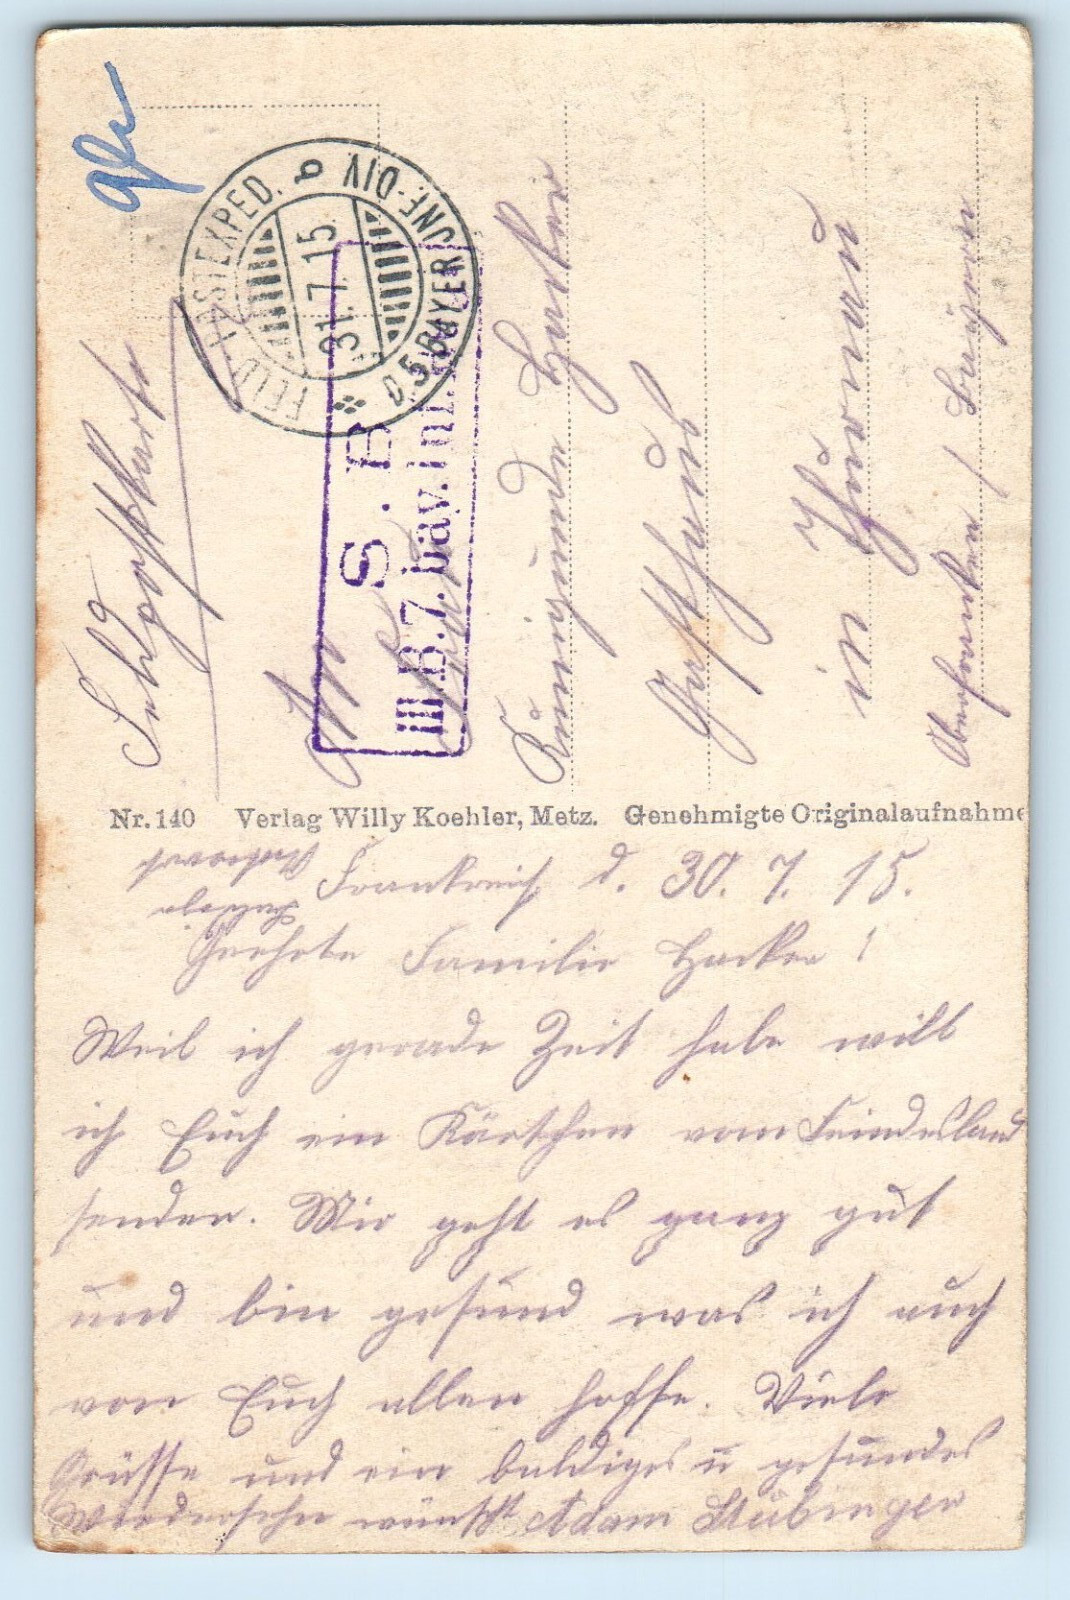 Feldpostkarte
FELD-POSTEXPED. b
31.7.15.
5.BAYER.INF-DIV
S. B.
III.B.7. bay. Inf.
An
Kunigunde Hacker
Gasthaus
in Thurnau
Oberfranken / Bayern
Nr. 140 Verlag Willy Koehler, Metz. Genehmigte Originalaufnahme
Antwort
Frankreich d. 30. 7. 15.
Geehrte Familie Hacker!
Weil ich gerade Zeit habe will
ich Euch ein Kärtchen vom Feindesland
senden. Mir geht es ganz gut
und bin gesund was ich auch
von Euch allen hoffe. Viele
Grüsse und ein baldiges u gesundes
Wiedersehn wünscht Adam Stübinger